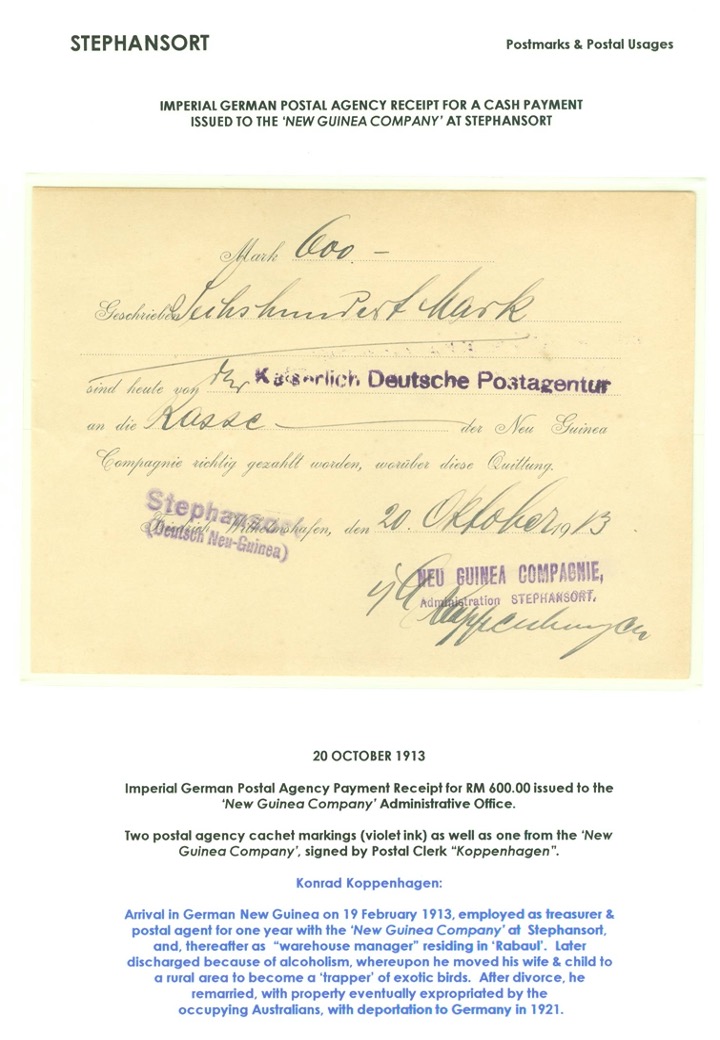 STEPHANSORT
Postmarks & Postal Usages
IMPERIAL GERMAN POSTAL AGENCY RECEIPT FOR A CASH PAYMENT
ISSUED TO THE ‘NEW GUINEA COMPANY’ AT STEPHANSORT
Mark 600.–
Geschrieben Sechshundert Mark
sind heute von der Kaiserlich Deutsche Postagentur
an die Kasse der Neu Guinea
Compagnie richtig gezahlt worden, worüber diese Quittung.
Stephansort
Friedrich Wilhelmshafen, den 20. Oktober 1913.
(Deutsch Neu-Guinea)
NEU GUINEA COMPAGNIE,
Administration STEPHANSORT.
Koppenhagen
20 OCTOBER 1913
Imperial German Postal Agency Payment Receipt for RM 600.00 issued to the
‘New Guinea Company’ Administrative Office.
Two postal agency cachet markings (violet ink) as well as one from the ‘New
Guinea Company’, signed by Postal Clerk “Koppenhagen”.
Konrad Koppenhagen:
Arrival in German New Guinea on 19 February 1913, employed as treasurer &
postal agent for one year with the ‘New Guinea Company’ at Stephansort,
and, thereafter as “warehouse manager” residing in ‘Rabaul’. Later
discharged because of alcoholism, whereupon he moved his wife & child to
a rural area to become a ‘trapper’ of exotic birds. After divorce, he
remarried, with property eventually expropriated by the
occupying Australians, with deportation to Germany in 1921.